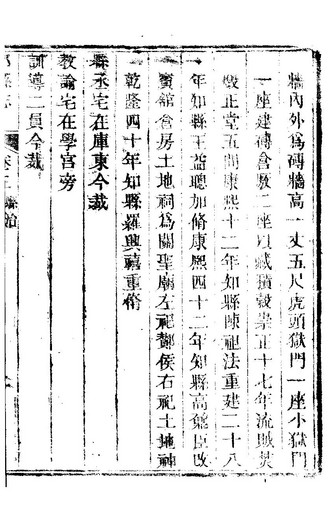 牆內外爲磚牆高一丈五尺虎頭獄門一座小獄門
一座建磚倉廒二座以藏積穀崇正十七年流賊焚
燬正堂五間康熙十二年知縣陳祀法重建二十八
年知縣王益聰加脩康熙四十二年知縣高蔭臣改
賓館倉房土地祠爲關聖廟左祀酇侯右祀土地神
乾隆四十年知縣羅興禧重脩
縣丞宅在庫東今裁
教諭宅在學宮旁
訓導二員今裁
縣治